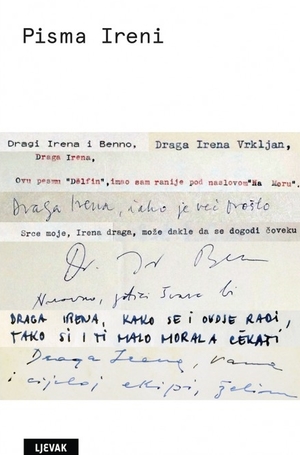 Pisma Ireni
Dragi Irena i Benno,
Draga Irena Vrkljan,
Draga Irena,
Ovu pesmu "Delfin", imao sam ranije pod naslovom "Na Moru".
Draga Irena, iako je već prošlo
Srce moje, Irena draga, može dakle da se dogodi čoveku
DRAGA IRENA, KAKO SE I OVDJE RADI,
TAKO SI I TI MALO MORALA ČEKATI
Draga Irena,
i cijeloj ekipi, želim
LJEVAK